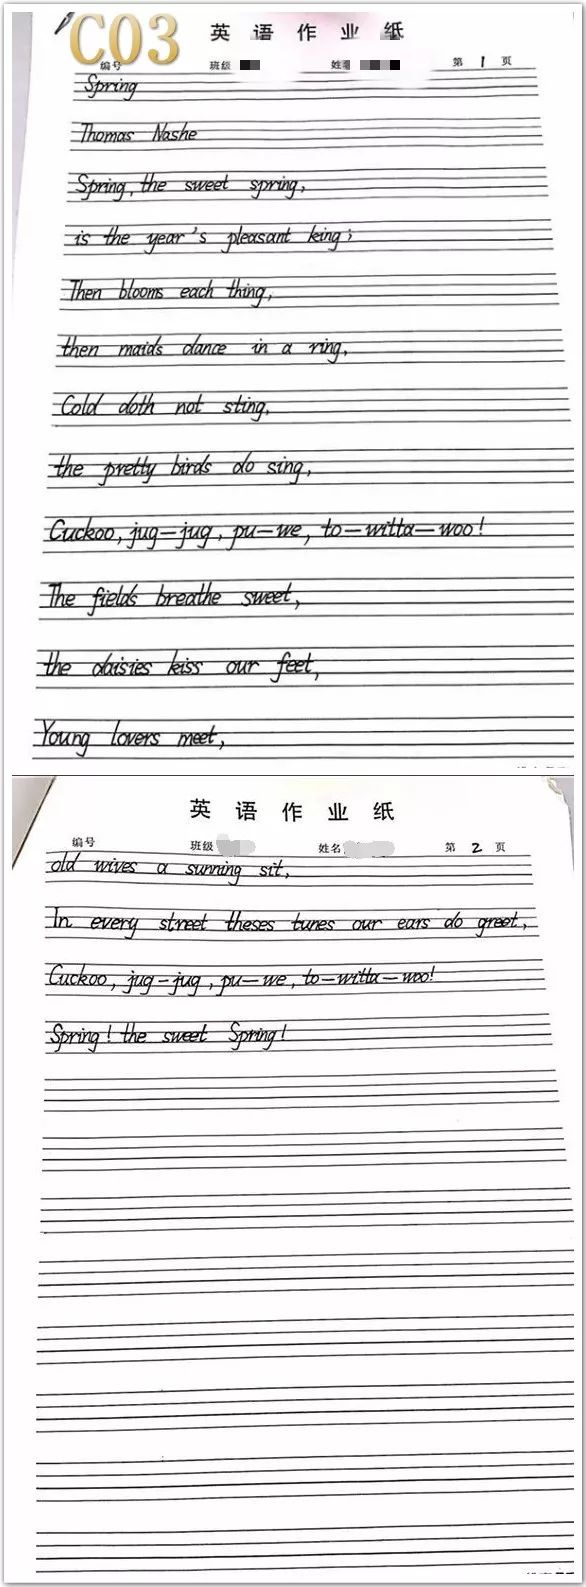 C03
英语作业纸
编号 班级 姓名 第 1 页
Spring
Thomas Nashe
Spring, the sweet spring,
is the year's pleasant king;
Then blooms each thing,
then maids dance in a ring,
Cold doth not sting,
the pretty birds do sing,
Cuckoo, jug-jug, pu-we, to-witta-woo!
The fields breathe sweet,
the daisies kiss our feet,
Young lovers meet,
英语作业纸
编号 班级 姓名 第 2 页
old wives a sunning sit,
In every street theses tunes our ears do greet,
Cuckoo, jug-jug, pu-we, to-witta-woo!
Spring! the sweet Spring!